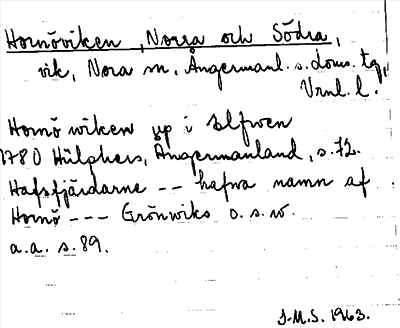 Hornöviken, Norra och Södra,
vik, Nora sn, Ångermanl. s. doms. tg,
Vrnl. l.
Hornö wiken up i Elfwen
1780 Hülphers, Ångermanland, s. 72.
Hafsfjärdarne -- hafwa namn af
Hornö --- Grönwiks o.s.w.
a.a. s. 89.
J.M.S. 1963.